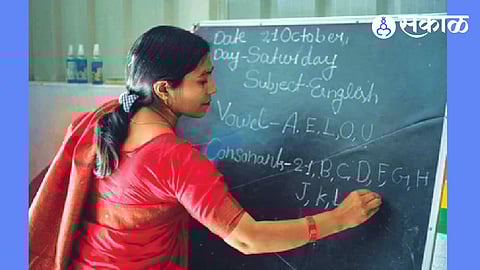 सकाळ
Date 21 October,
Day-Saturday
Subject-English
Vowel-A, E, I, O, U
Consonants-21, B, C, D, F, G, H
J, K, L